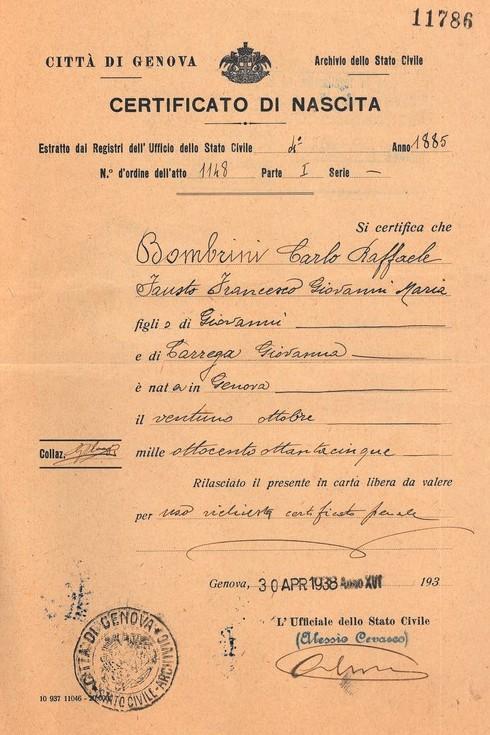 11786
CITTÀ DI GENOVA
Archivio dello Stato Civile
CERTIFICATO DI NASCITA
Estratto dai Registri dell'Ufficio dello Stato Civile 4° Anno 1885
N.° d'ordine dell'atto 1148 Parte I Serie —
Si certifica che
Bombrini Carlo Raffaele
Fausto Francesco Giovanni Maria
figlio di Giovanni
e di Carrega Giovanna
è nato in Genova
il ventuno ottobre
Collaz.
mille ottocento ottantacinque
Rilasciato il presente in carta libera da valere
per uso richiesta certificato penale
Genova, 30 APR 1938 Anno XVI 193
L'Ufficiale dello Stato Civile
(Alessio Cevasco)
CITTÀ DI GENOVA
STATO CIVILE
10 937 11046